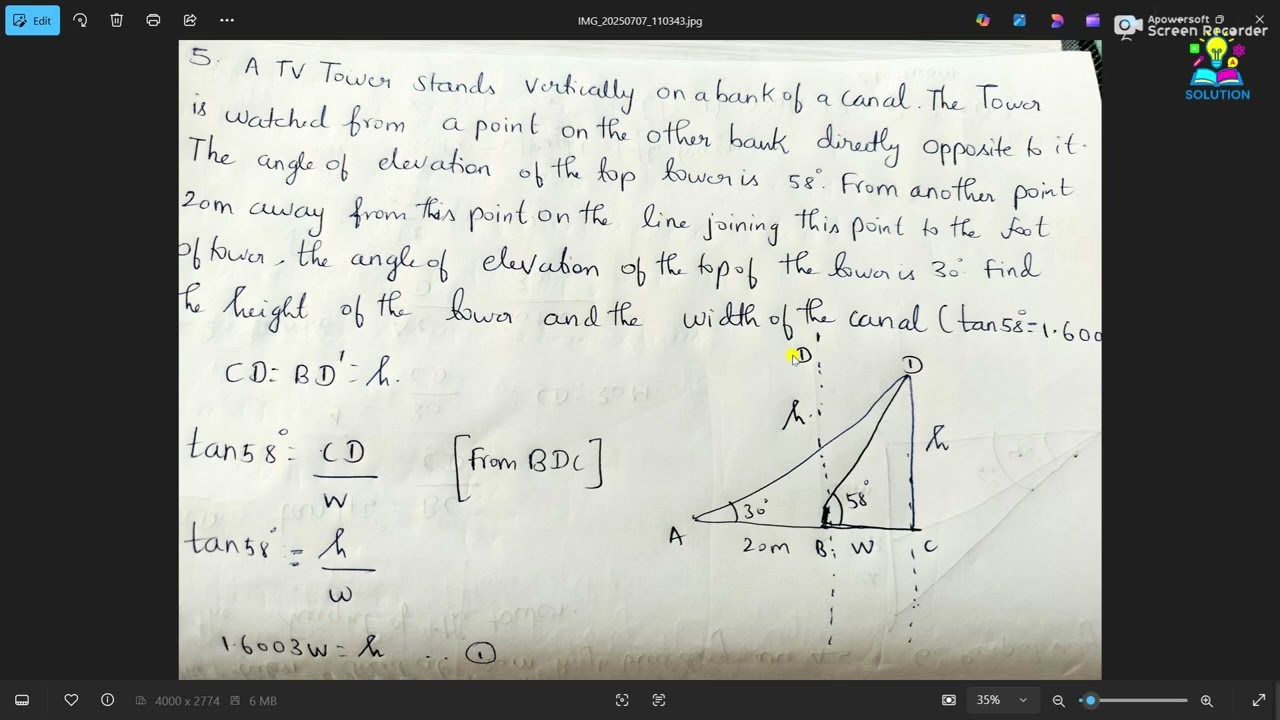 Edit
IMG_20250707_110343.jpg
Apowersoft
Screen Recorder
SOLUTION
5. A TV Tower stands vertically on a bank of a canal. The Tower
is watched from a point on the other bank directly opposite to it.
The angle of elevation of the top tower is 58°. From another point
20m away from this point on the line joining this point to the foot
of tower, the angle of elevation of the top of the tower is 30° Find
he height of the tower and the width of the canal (tan58°=1.600
CD = BD' = h.
D
D
h.
h
tan58° = CD
W
[From BDC]
30°
58°
A
20m
B
W
C
tan58° = h
W
1.6003W = h ... ①
4000 x 2774
6 MB
35%